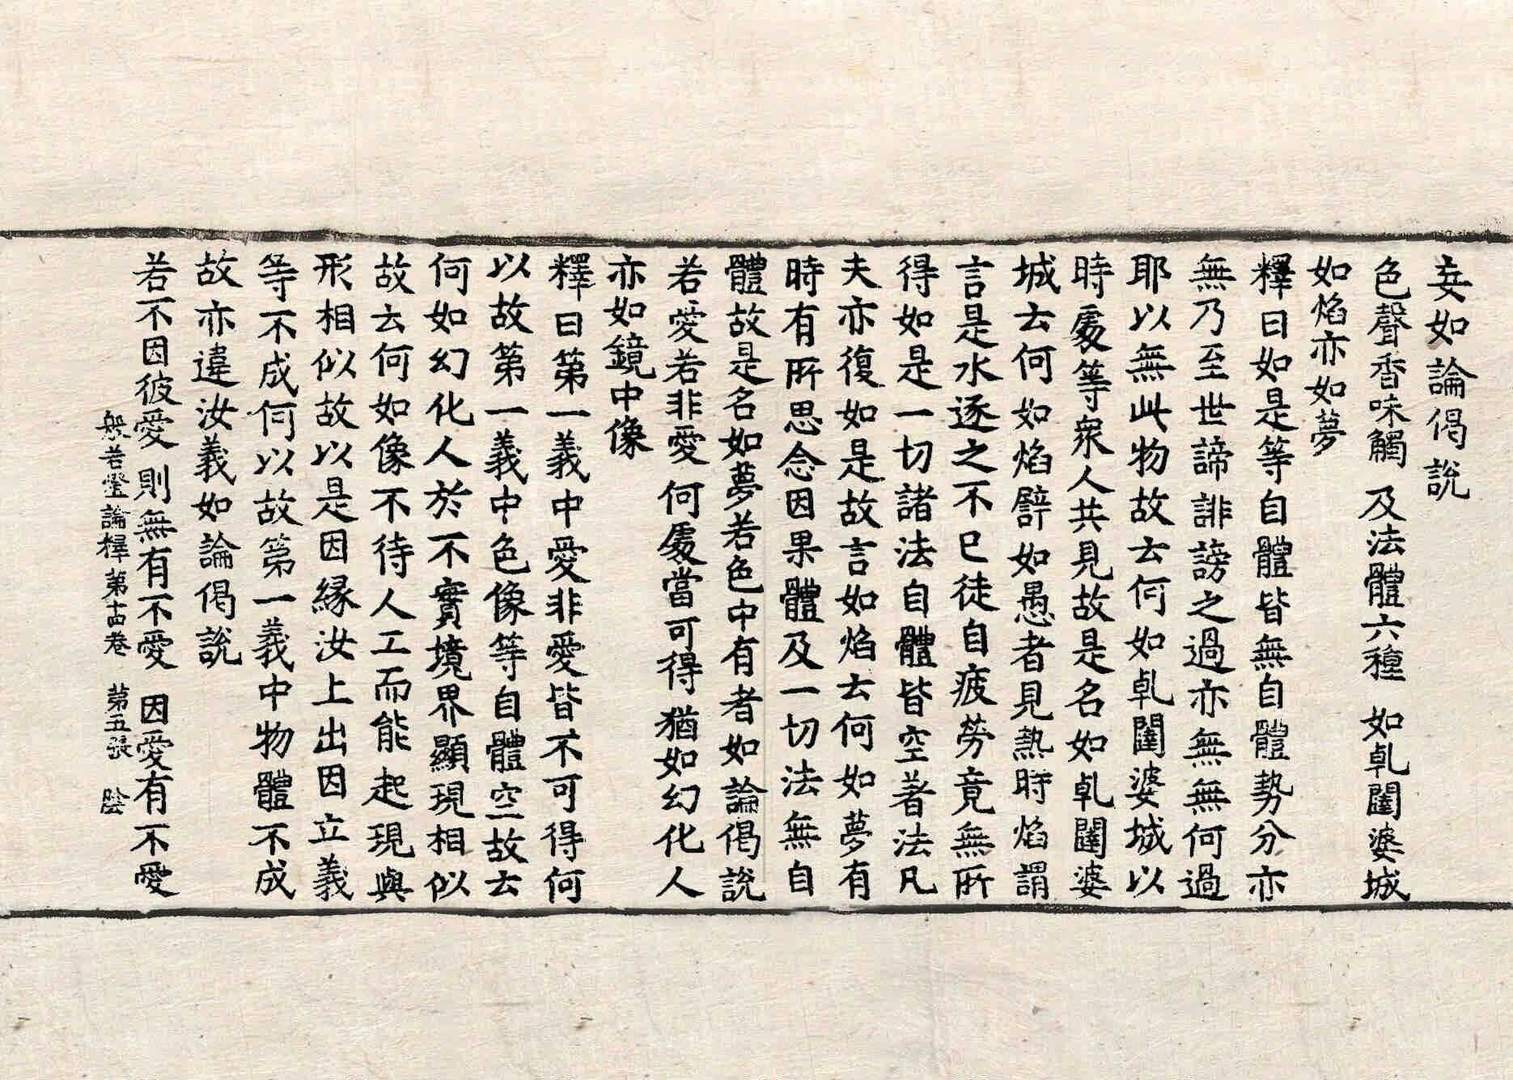 妄如論偈說
色聲香味觸 及法體六種 如乹闥婆城
如焰亦如夢
釋曰如是等自體皆無自體勢分亦
無乃至世諦誹謗之過亦無無何過
耶以無此物故去何如乹闥婆城以
時䖏等衆人共見故是名如乹闥婆
城去何如焰譬如愚者見熱時焰謂
言是水逐之不已徒自疲勞竟無所
得如是一切諸法自體皆空著法凡
夫亦復如是故言如焰去何如夢有
時有所思念因果體及一切法無自
體故是名如夢若色中有者如論偈說
若愛若非愛 何䖏當可得 猶如幻化人
亦如鏡中像
釋曰第一義中愛非愛皆不可得何
以故第一義中色像等自體空故去
何如幻化人於不實境界顯現相似
故去何如像不待人工而能起現與
形相似故以是因緣汝上出因立義
等不成何以故第一義中物體不成
故亦違汝義如論偈說
若不因彼愛 則無有不愛 因愛有不愛
般若燈論釋第十四卷 第五張